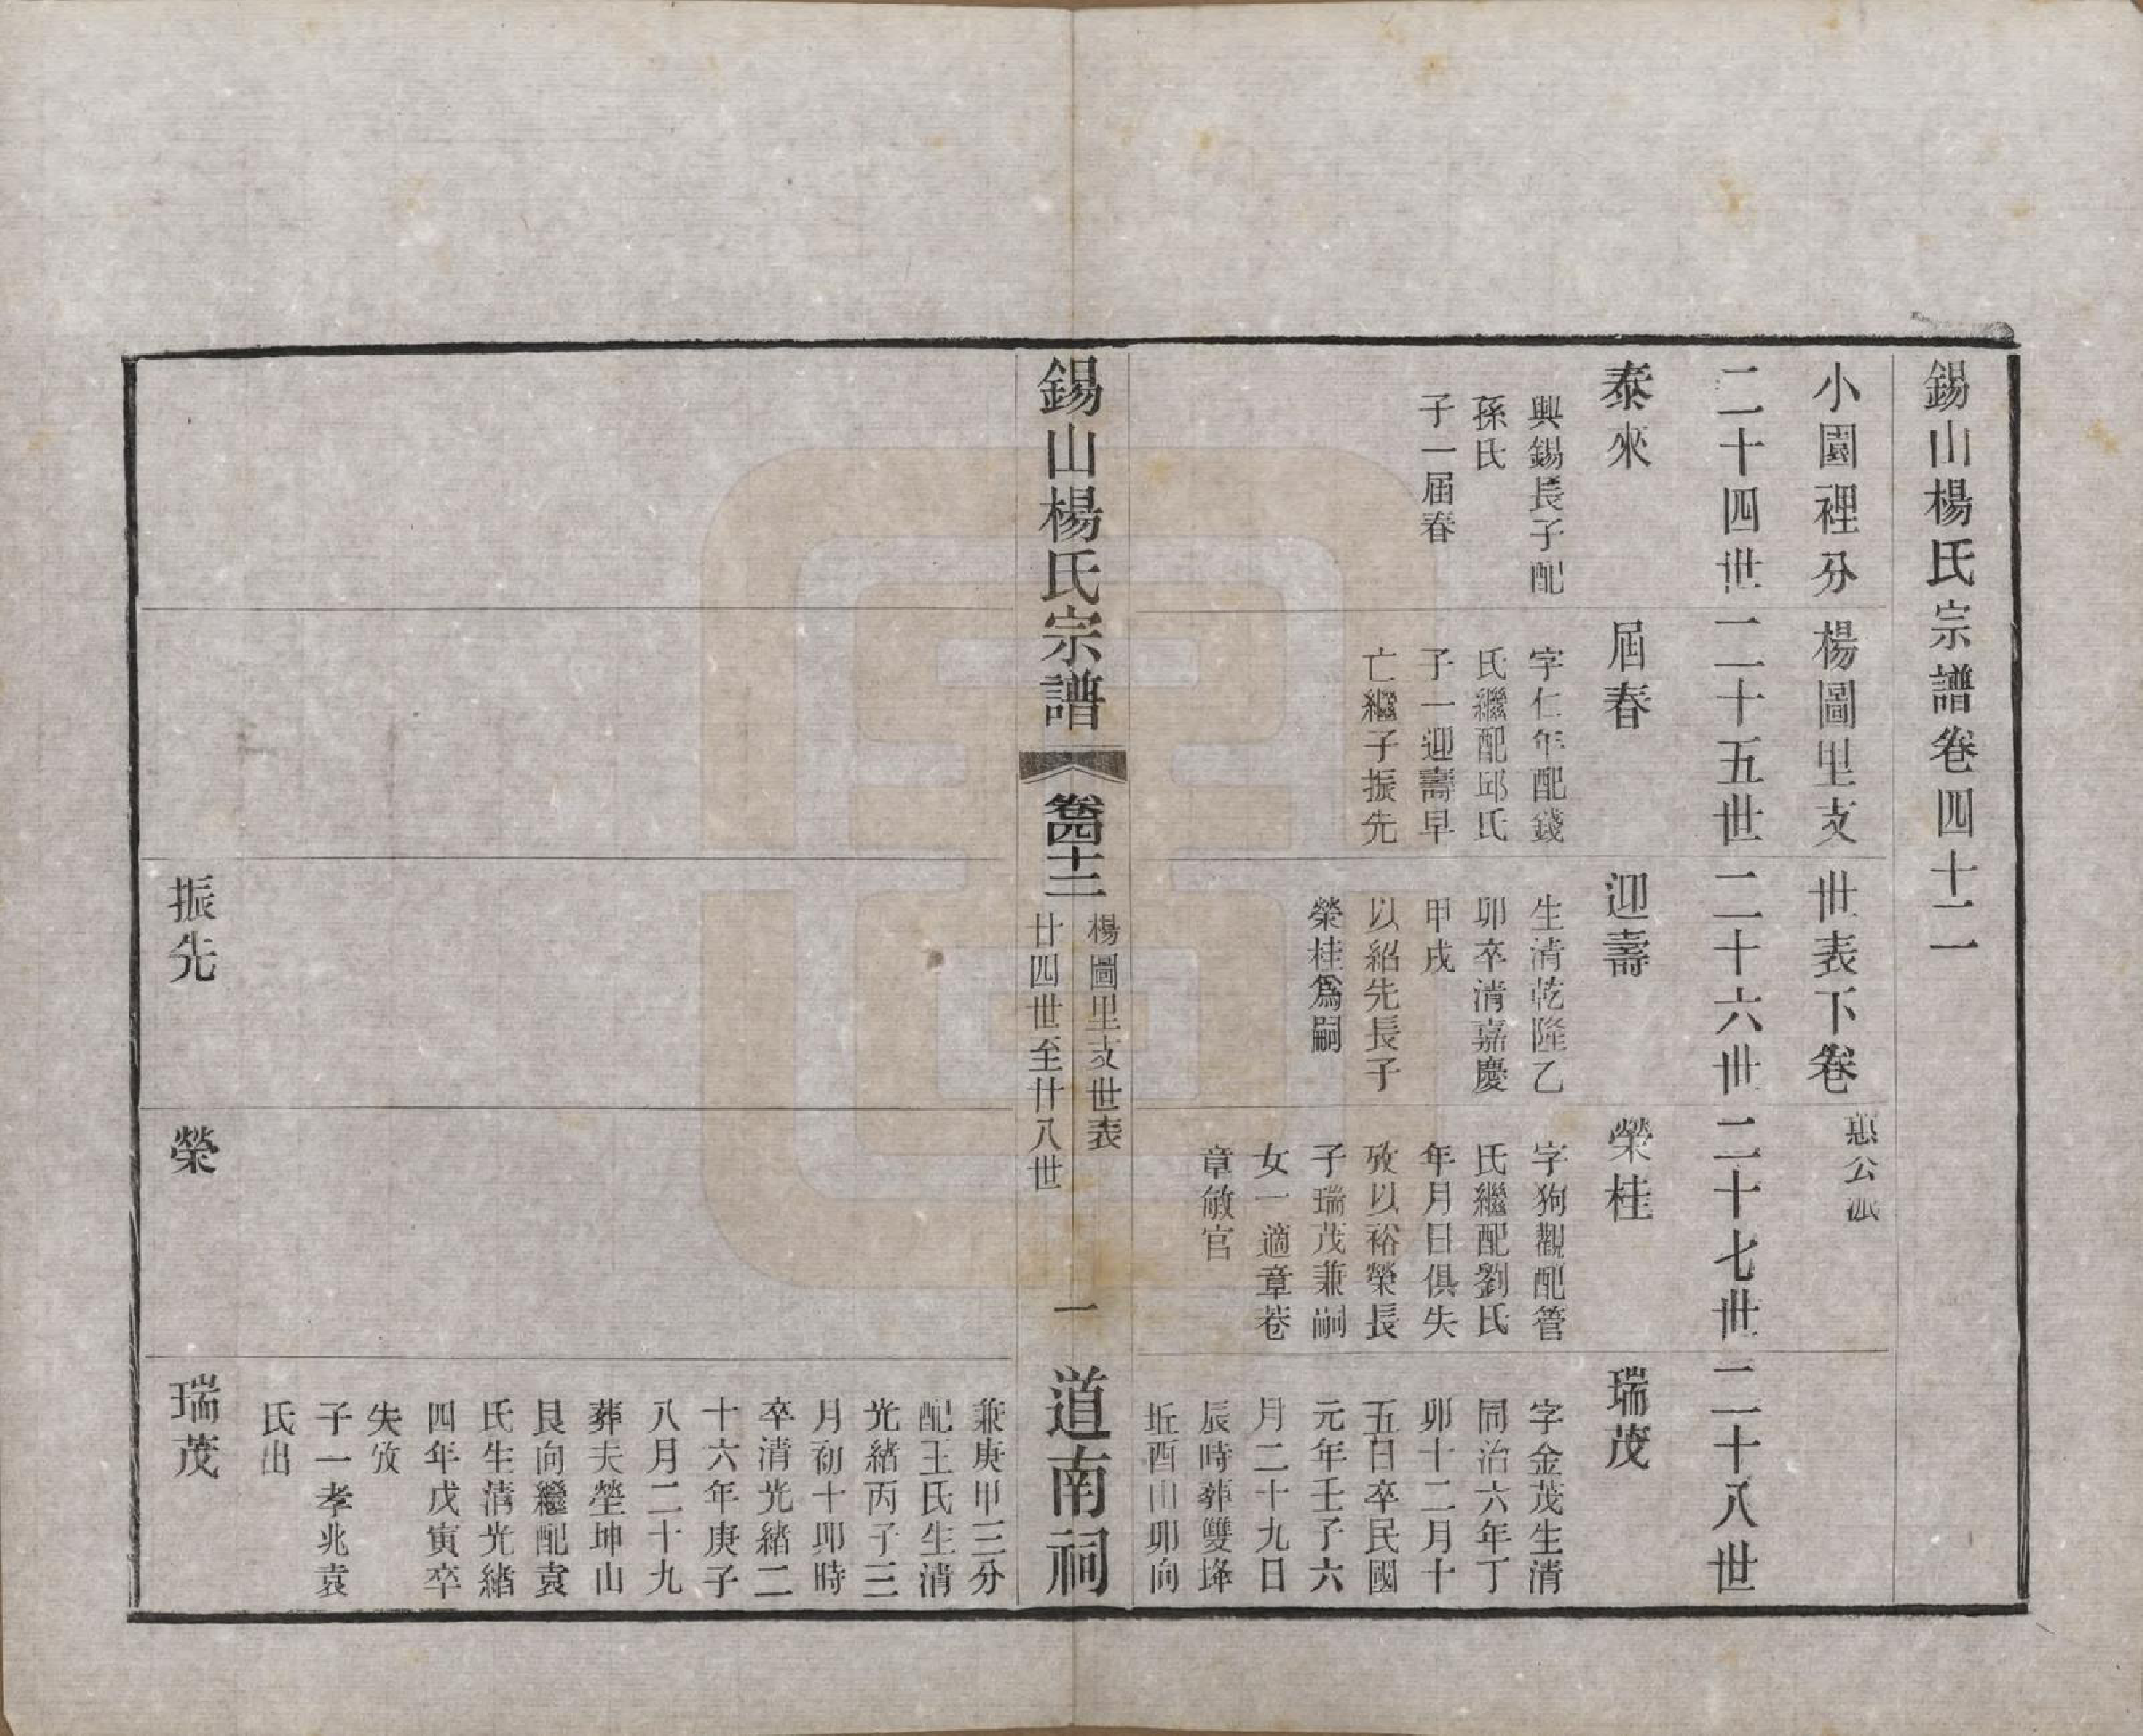 錫山楊氏宗譜卷四十二
小園裡分楊圖里支世表下卷
惠公派
二十四世
二十五世
二十六世
二十七世
二十八世
泰來
興錫長子配
孫氏
子一屆春
屆春
字仁年配錢
氏繼配邱氏
子一迎壽早
亡繼子振先
迎壽
生清乾隆乙
卯卒清嘉慶
甲戌
以紹先長子
榮桂爲嗣
榮桂
字狗觀配管
氏繼配劉氏
年月日俱失
攷以裕榮長
子瑞茂兼嗣
女一適章巷
章敏官
瑞茂
字金茂生清
同治六年丁
卯十二月十
五日卒民國
元年壬子六
月二十九日
辰時葬雙垾
坵酉山卯向
錫山楊氏宗譜
卷四十二
楊圖里支世表
廿四世至廿八世
一
道南祠
兼庚甲三分
配王氏生清
光緒丙子三
月初十卯時
卒清光緒二
十六年庚子
八月二十九
葬夫塋坤山
艮向繼配袁
氏生清光緒
四年戊寅卒
失攷
子一孝兆袁
氏出
振先
榮
瑞茂